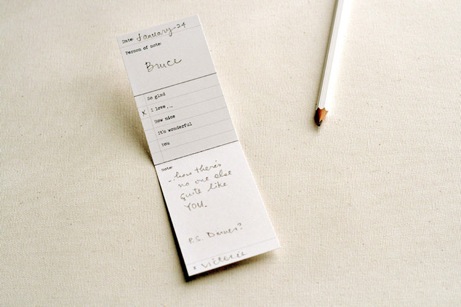 Date: January 24
Person of note:
Bruce
So glad
x I love...
How nice
It's wonderful
note:
...how there's
no one else
quite like
YOU.
P.S. Dinner?